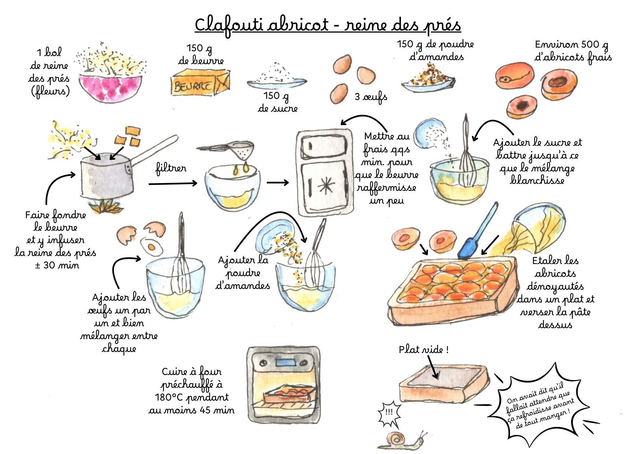 Clafouti abricot - reine des prés
1 bol
de reine
des prés
(fleurs)
150 g
de beurre
BEURRE
150 g
de sucre
3 œufs
150 g de poudre
d'amandes
Environ 500 g
d'abricots frais
Faire fondre
le beurre
et y infuser
la reine des prés
± 30 min
filtrer
Mettre au
frais qqs
min. pour
que le beurre
raffermisse
un peu
Ajouter le sucre et
battre jusqu'à ce
que le mélange
blanchisse
Ajouter les
œufs un par
un et bien
mélanger entre
chaque
Ajouter la
poudre
d'amandes
Etaler les
abricots
dénoyautés
dans un plat et
verser la pâte
dessus
Cuire à four
préchauffé à
180°C pendant
au moins 45 min
Plat vide !
!!!
On avait dit qu'il
fallait attendre que
ça refroidisse avant
de tout manger !